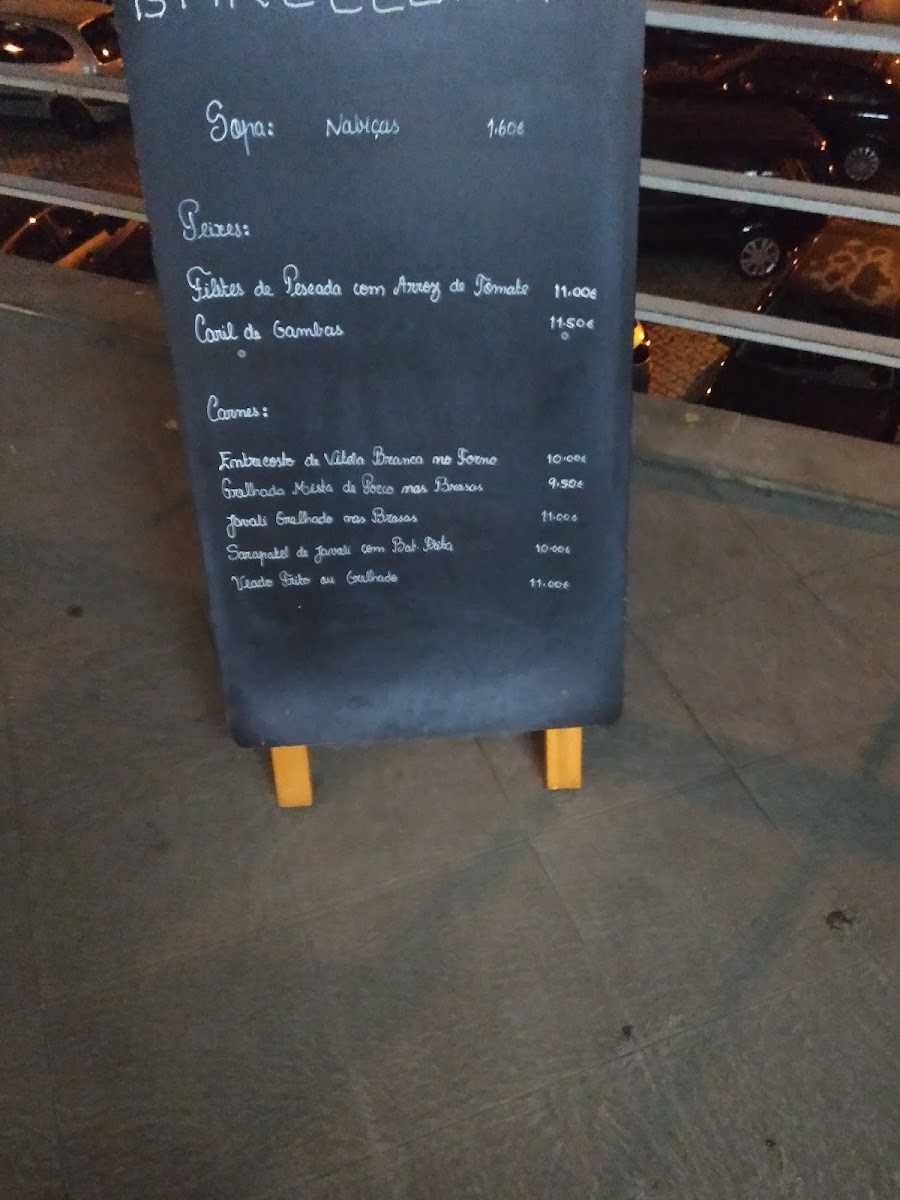 Sopa: Nabiças 1.60€
Peixes:
Filetes de Pescada com Arroz de Tomate 11.00€
Caril de Gambas 11.50€
Carnes:
Entrecosto de Vitela Branca no Forno 10.00€
Grelhada Mista de Porco nas Brasas 9.50€
Javali Grelhado nas Brasas 11.00€
Sarapatel de Javali com Bat. Frita 10.00€
Veado Frito ou Grelhado 11.00€